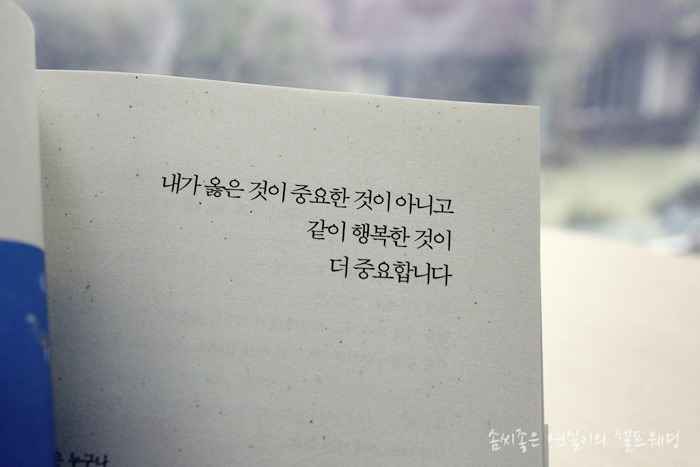 내가 옳은 것이 중요한 것이 아니고
같이 행복한 것이
더 중요합니다
누구나
솜씨좋은 연실이의 셀프웨딩